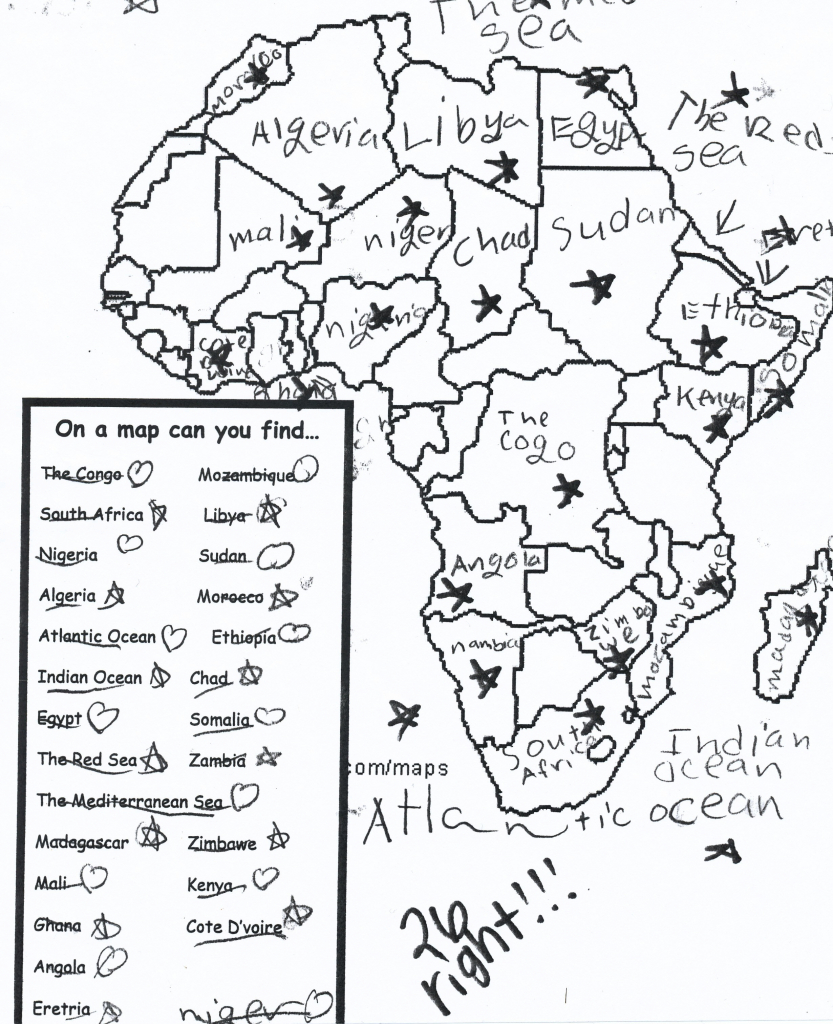 The med
sea
morocco
Algeria
Libya
Egypt
The Red
sea
mali
niger
Chad
Sudan
Eret
Ethiopea
Somalia
nigeria
cote
Ghana
Kenya
The
Cogo
Angola
nambia
Zimba
mozambique
madag
South
Africa
Indian
ocean
com/maps
Atlantic ocean
26
right!!!
On a map can you find...
The Congo
Mozambique
South Africa
Libya
Nigeria
Sudan
Algeria
Morocco
Atlantic Ocean
Ethiopia
Indian Ocean
Chad
Egypt
Somalia
The Red Sea
Zambia
The Mediterranean Sea
Madagascar
Zimbawe
Mali
Kenya
Ghana
Cote D'voire
Angola
Eretria
niger